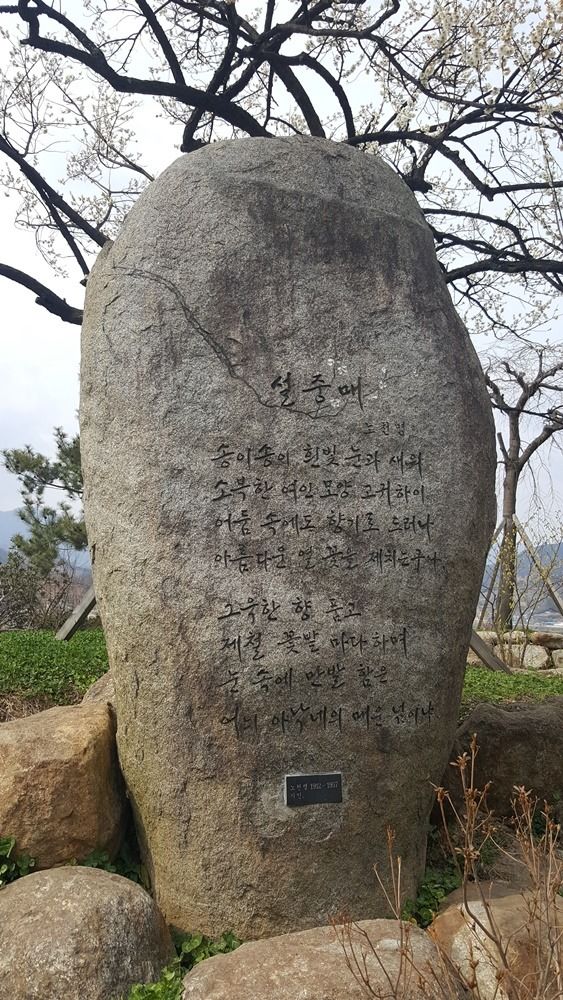 설중매
노천명
송이송이 흰빛 눈과 새워
소복한 여인 모양 고귀하이
어둠 속에도 향기로 드러나
아름다운 열 꽃을 제치는구나
그윽한 향 품고
제철 꽃밭 마다하며
눈 속에 만발 함은
어늬 아낙네의 매운 넋이냐
노천명 1912-1957
시인